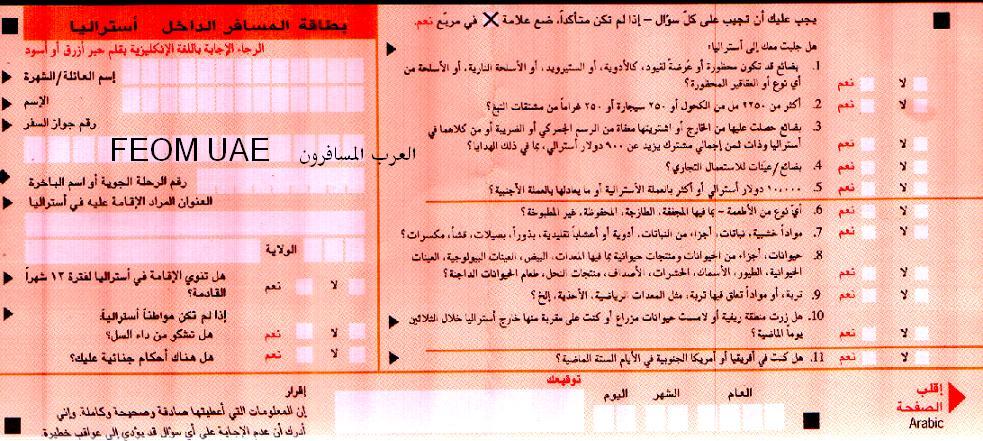 بطاقة المسافر الداخل أستراليا
الرجاء الإجابة باللغة الإنكليزية بقلم حبر أزرق أو أسود
إسم العائلة/الشهرة
الإسم
رقم جواز السفر
FEOM UAE العرب المسافرون
رقم الرحلة الجوية أو اسم الباخرة
العنوان المراد الإقامة عليه في أستراليا
الولاية
هل تنوي الإقامة في أستراليا لفترة ١٢ شهراً القادمة؟
نعم لا
إذا لم تكن مواطناً أسترالية:
هل تشكو من داء السل؟ نعم لا
هل هناك أحكام جنائية عليك؟ نعم لا
يجب عليك أن تجيب على كلّ سؤال – إذا لم تكن متأكداً، ضع علامة X في مربّع نعم.
هل جلبت معك إلى أستراليا:
1. بضائع قد تكون محظورة أو عُرضة لقيود، كالأدوية، أو الستيرويد، أو الأسلحة النارية، أو الأسلحة من
أي نوع أو العقاقير المحظورة؟ نعم لا
2. أكثر من ٢٢٥٠ مل من الكحول أو ٢٥٠ سيجارة أو ٢٥٠ غراماً من مشتقات التبغ؟ نعم لا
3. بضائع حصلت عليها من الخارج أو اشتريتها معفاة من الرسم الجمركي أو الضريبة أو من كلاهما في
أستراليا وذات ثمن إجمالي مشترك يزيد عن ٩٠٠ دولار أسترالي، بما في ذلك الهدايا؟ نعم لا
4. بضائع/عيّنات للاستعمال التجاري؟ نعم لا
5. ١٠,٠٠٠ دولار أسترالي أو أكثر بالعملة الأسترالية أو ما يعادلها بالعملة الأجنبية؟ نعم لا
6. أيّ نوع من الأطعمة – بما فيها المجففة، الطازجة، المحفوظة، غير المطبوخة؟ نعم لا
7. مواداً خشبية، نباتات، أجزاء من النباتات، أدوية أو أعشاباً تقليدية، بذوراً، بصيلات، قشاً، مكسرات؟ نعم لا
8. حيوانات، أجزاء من الحيوانات ومنتجات حيوانية بما فيها المعدات، البيض، العينات البيولوجية، العينات
الحيوانية، الطيور، الأسماك، الحشرات، الأصداف، منتجات النحل، طعام الحيوانات الداجنة؟ نعم لا
9. تربة، أو مواداً تعلق فيها تربة، مثل المعدات الرياضية، الأحذية، إلخ؟ نعم لا
10. هل زرت منطقة ريفية أو لامست حيوانات مزراع أو كنت على مقربة منها خارج أستراليا خلال الثلاثين
يوماً الماضية؟ نعم لا
11. هل كنت في أفريقيا أو أمريكا الجنوبية في الأيام الستة الماضية؟ نعم لا
إقرار
إن المعلومات التي أعطيتها صادقة وصحيحة وكاملة. وإني
أدرك أن عدم الإجابة على أي سؤال قد يؤدي إلى عواقب خطيرة.
توقيعك
اليوم الشهر العام
إقلب
الصفحة
Arabic